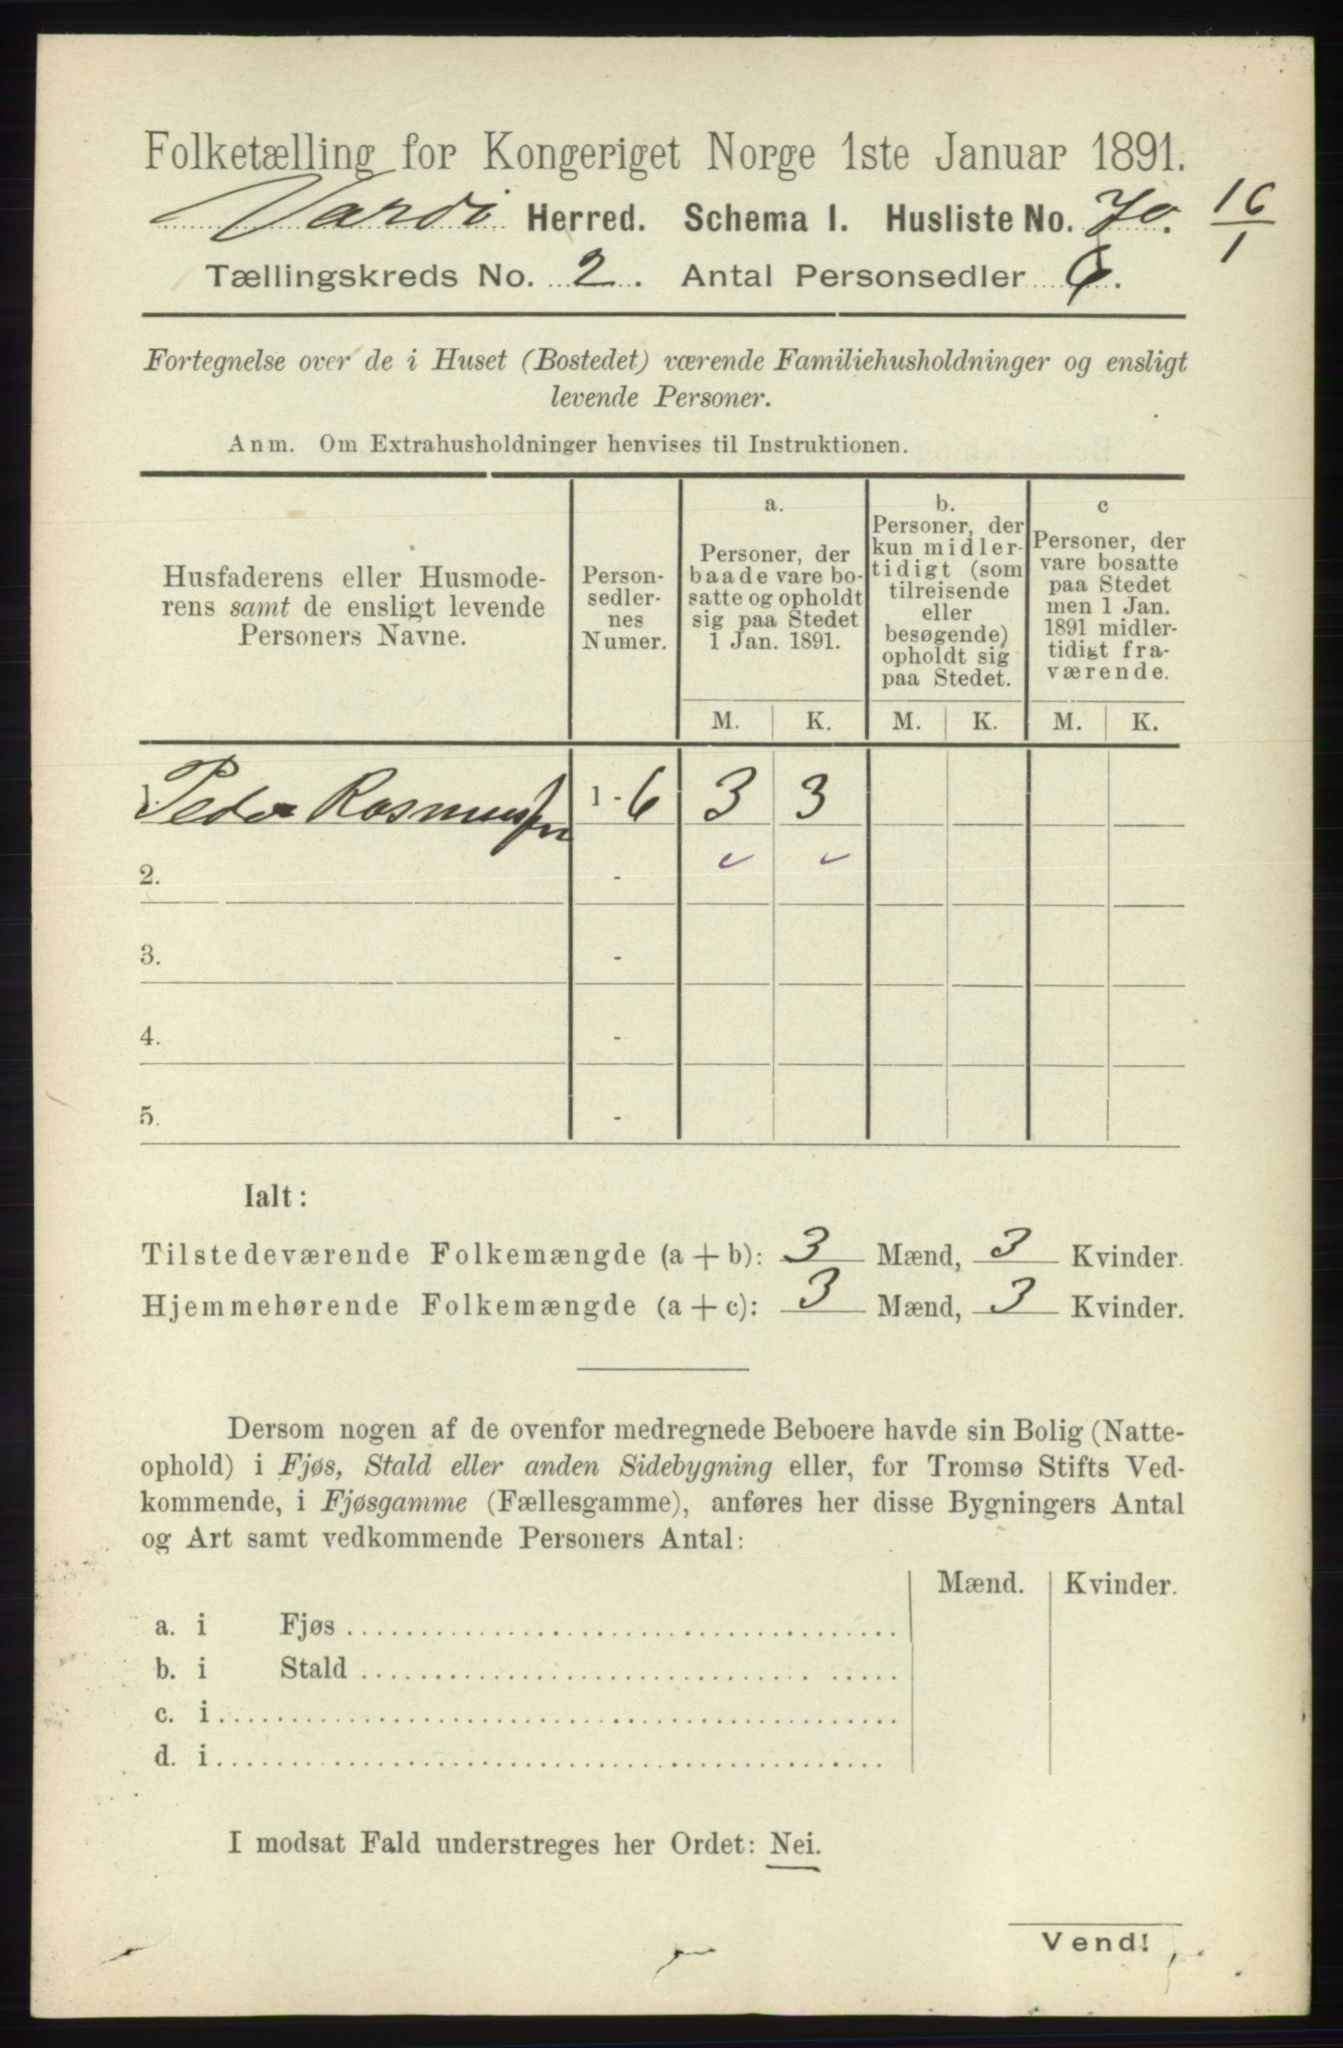 Folketælling for Kongeriget Norge 1ste Januar 1891.
Vardö Herred. Schema 1. Husliste No. 70. 16/1
Tællingskreds No. 2. Antal Personsedler 6.
Fortegnelse over de i Huset (Bostedet) værende Familiehusholdninger og ensligt
levende Personer.
Anm. Om Extrahusholdninger henvises til Instruktionen.
Husfaderens eller Husmode-
rens samt de ensligt levende
Personers Navne.
Person-
sedler-
nes
Numer.
a.
Personer, der
baade vare bo-
satte og opholdt
sig paa Stedet
1 Jan. 1891.
b.
Personer, der
kun midler-
tidigt (som
tilreisende
eller
besøgende)
opholdt sig
paa Stedet.
c
Personer, der
vare bosatte
paa Stedet
men 1 Jan.
1891 midler-
tidigt fra-
værende.
M. K. M. K. M. K.
Peder Rasmussen 1 - 6 3 3
2. -
3. -
4. -
5. -
Ialt:
Tilstedeværende Folkemængde (a + b): 3 Mænd, 3 Kvinder.
Hjemmehørende Folkemængde (a + c): 3 Mænd, 3 Kvinder.
Dersom nogen af de ovenfor medregnede Beboere havde sin Bolig (Natte-
ophold) i Fjøs, Stald eller anden Sidebygning eller, for Tromsø Stifts Ved-
kommende, i Fjøsgamme (Fællesgamme), anføres her disse Bygningers Antal
og Art samt vedkommende Personers Antal:
Mænd. Kvinder.
a. i Fjøs
b. i Stald
c. i
d. i
I modsat Fald understreges her Ordet: Nei.
Vend!